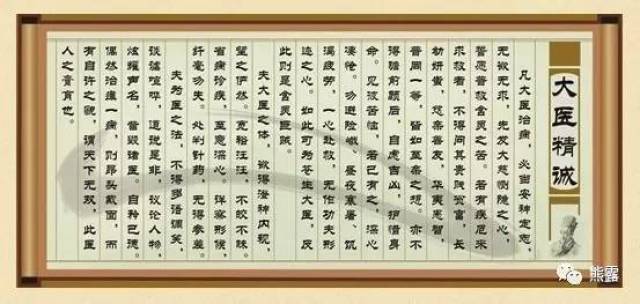 大医精诚
凡大医治病，必当安神定志，
无欲无求，先发大慈恻隐之心，
誓愿普救含灵之苦。若有疾厄来
求救者，不得问其贵贱贫富，长
幼妍蚩，怨亲善友，华夷愚智，
普同一等，皆如至亲之想。亦不
得瞻前顾后，自虑吉凶，护惜身
命。见彼苦恼，若己有之，深心
凄怆。勿避险巇、昼夜寒暑、饥
渴疲劳，一心赴救，无作功夫形
迹之心。如此可为苍生大医，反
此则是含灵巨贼。
夫大医之体，欲得澄神内视，
望之俨然。宽裕汪汪，不皎不昧。
省病诊疾，至意深心。详察形候，
纤毫勿失。处判针药，无得参差。
夫为医之法，不得多语调笑，
谈谑喧哗，道说是非，议论人物，
炫耀声名，訾毁诸医。自矜己德。
偶然治瘥一病，则昂头戴面，而
有自许之貌，谓天下无双，此医
人之膏肓也。
熊露